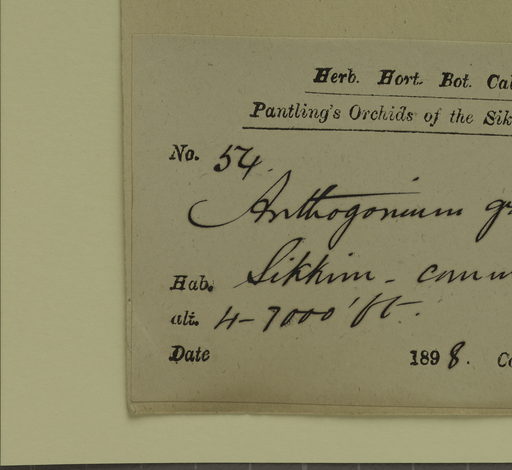 Herb. Hort. Bot. Cal
Pantling's Orchids of the Sik
No. 54.
Anthogonium gr
Hab. Sikkim - comm
alt. 4-7000' ft.
Date 1898. Co